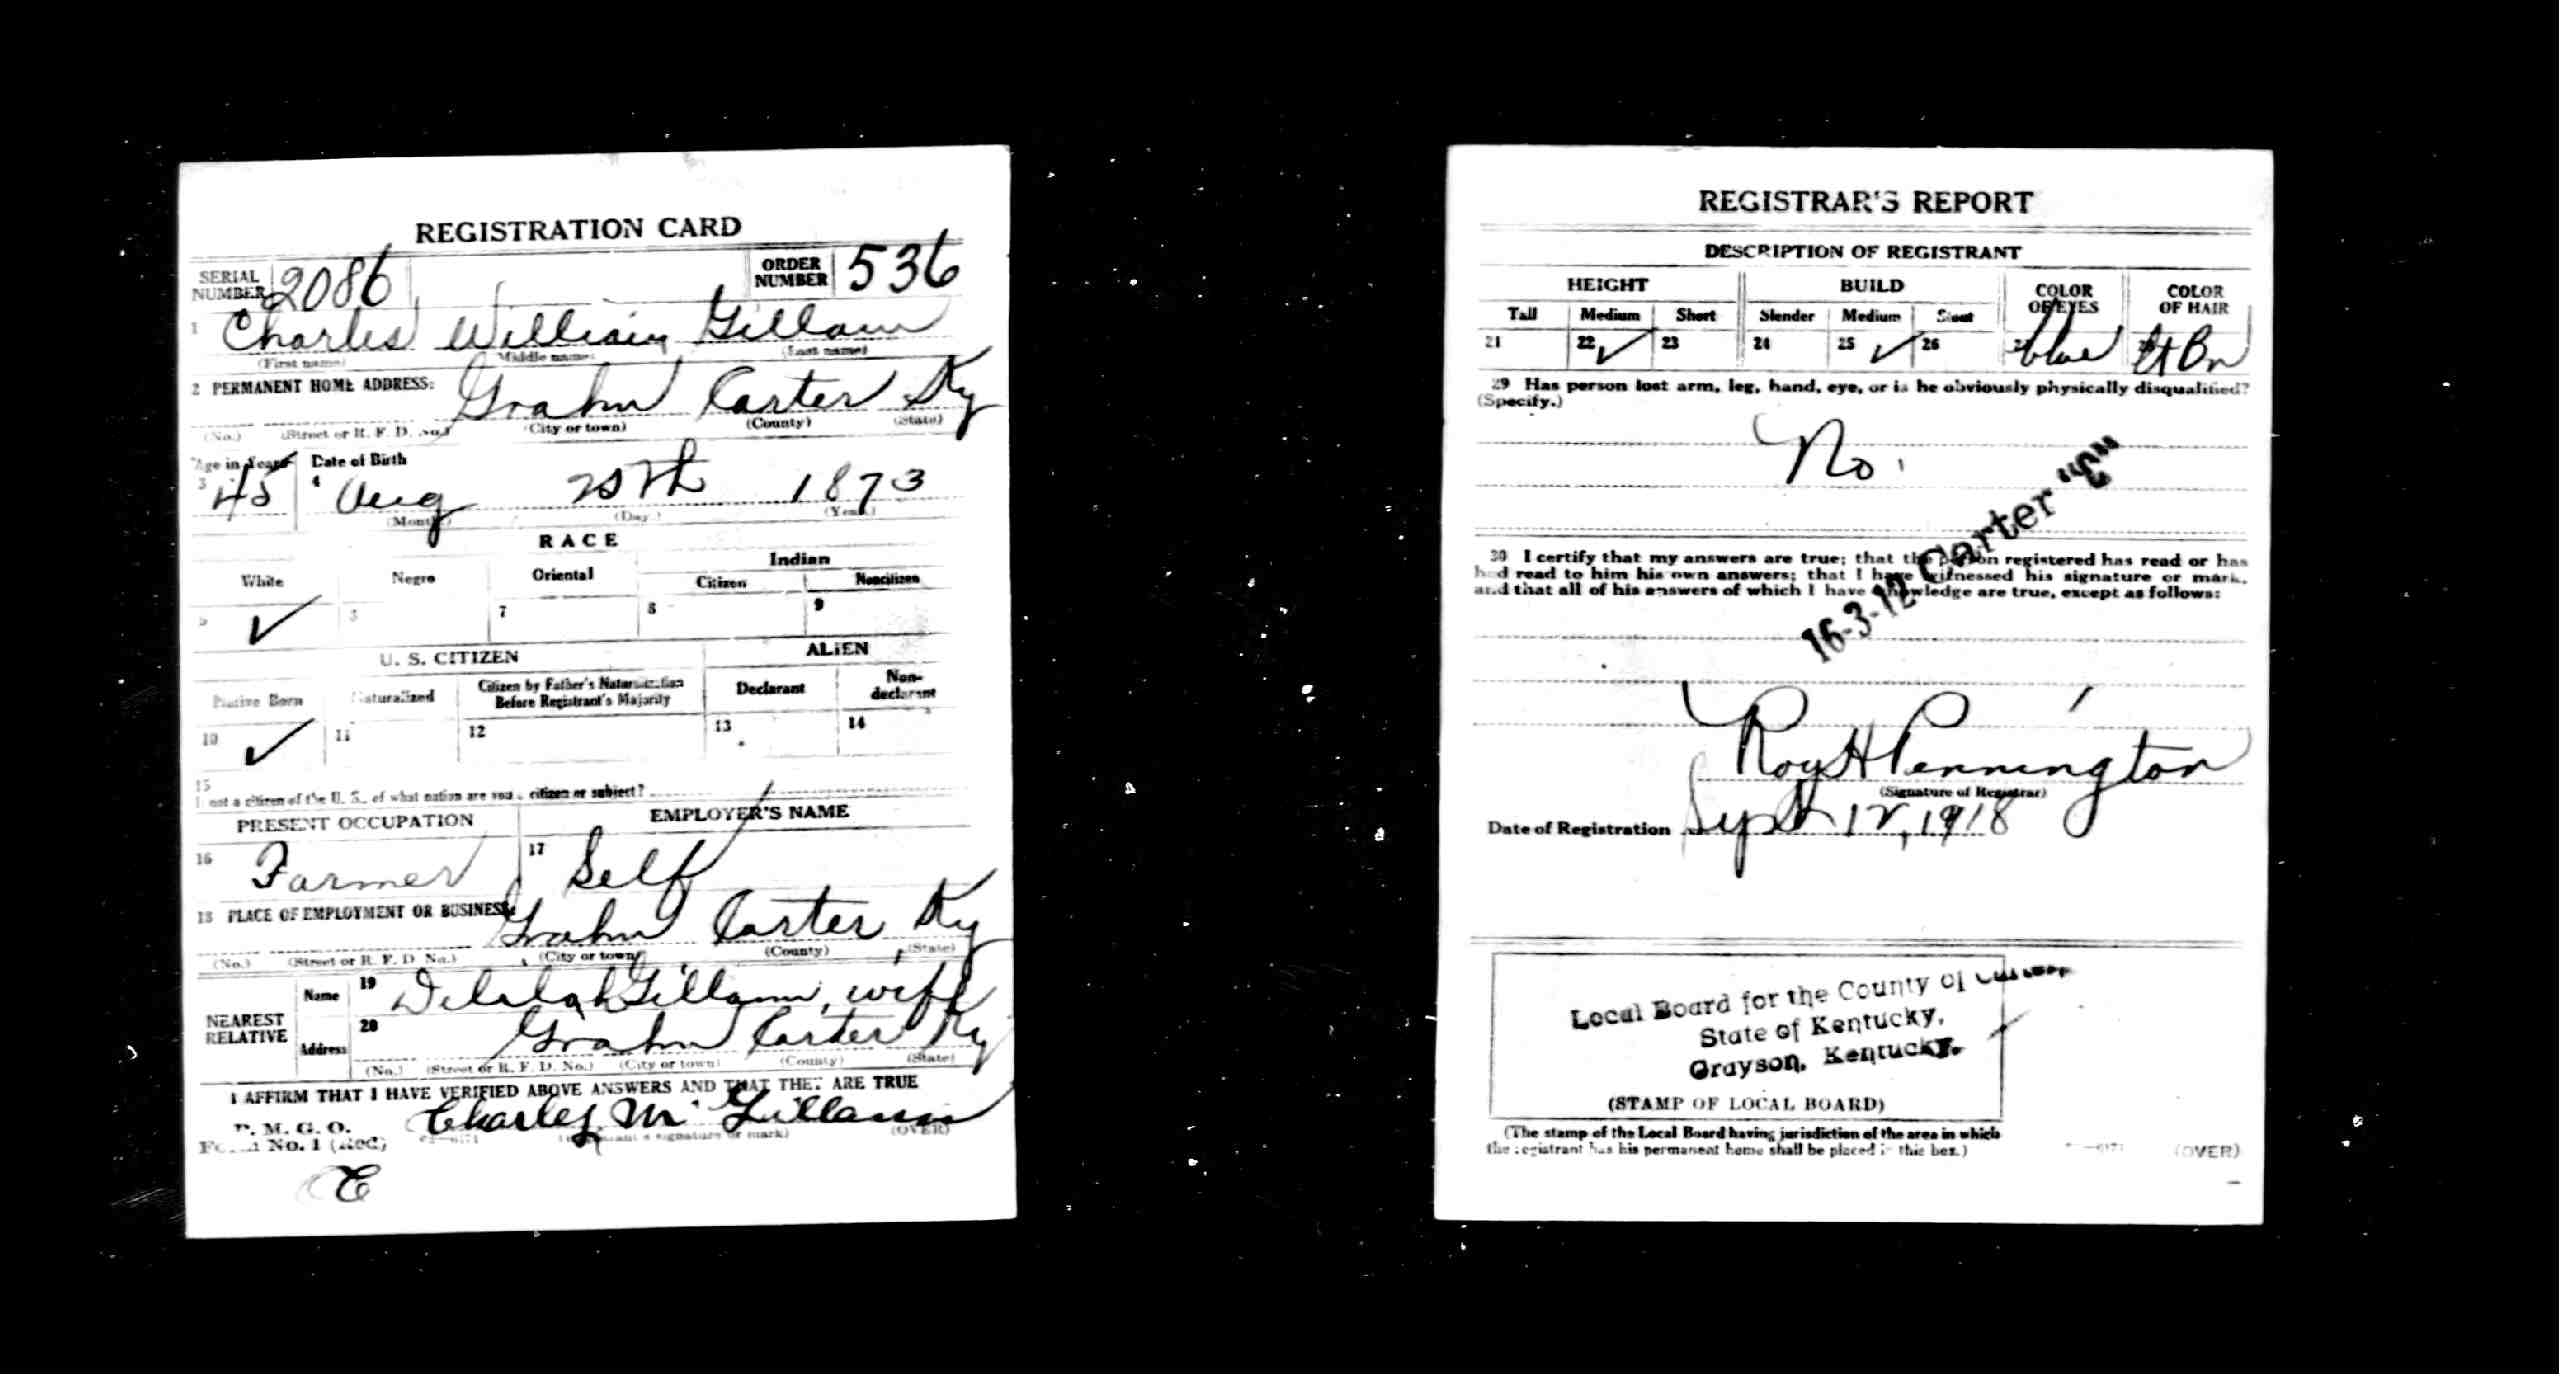 REGISTRATION CARD
SERIAL NUMBER 2086 ORDER NUMBER 536
1 Charles William Gillam
(First name) (Middle name) (Last name)
2 PERMANENT HOME ADDRESS:
Grahn Carter Ky
(No.) (Street or R. F. D. No.) (City or town) (County) (State)
Age in Years Date of Birth
3 45 4 Aug 25th 1873
(Month) (Day) (Year)
RACE
White Negro Oriental Indian
Citizen Noncitizen
5 ✓ 6 7 8 9
U. S. CITIZEN ALIEN
Native Born Naturalized Citizen by Father's Naturalization Before Registrant's Majority Declarant Non-declarant
10 ✓ 11 12 13 14
15
If not a citizen of the U. S., of what nation are you a citizen or subject?
PRESENT OCCUPATION EMPLOYER'S NAME
16 Farmer 17 Self
18 PLACE OF EMPLOYMENT OR BUSINESS:
Grahn Carter Ky
(No.) (Street or R. F. D. No.) (City or town) (County) (State)
NEAREST RELATIVE
Name 19 Delilah Gillam, wife
Address 20 Grahn Carter Ky
(No.) (Street or R. F. D. No.) (City or town) (County) (State)
I AFFIRM THAT I HAVE VERIFIED ABOVE ANSWERS AND THAT THEY ARE TRUE
P. M. G. O.
Form No. 1 (Red) Charley M Gillam
(Registrant's signature or mark) (OVER)
E
REGISTRAR'S REPORT
DESCRIPTION OF REGISTRANT
HEIGHT BUILD COLOR OF EYES COLOR OF HAIR
Tall Medium Short Slender Medium Stout
21 22 ✓ 23 24 25 ✓ 26 blue Lt Bn
29 Has person lost arm, leg, hand, eye, or is he obviously physically disqualified?
(Specify.)
No.
16-3-12 Carter "C"
30 I certify that my answers are true; that the person registered has read or has
had read to him his own answers; that I have witnessed his signature or mark,
and that all of his answers of which I have knowledge are true, except as follows:
Roy H Pennington
(Signature of Registrar)
Date of Registration Sept 12, 1918
Local Board for the County of Carter
State of Kentucky,
Grayson, Kentucky.
(STAMP OF LOCAL BOARD)
(The stamp of the Local Board having jurisdiction of the area in which
the registrant has his permanent home shall be placed in this box.)
(OVER)